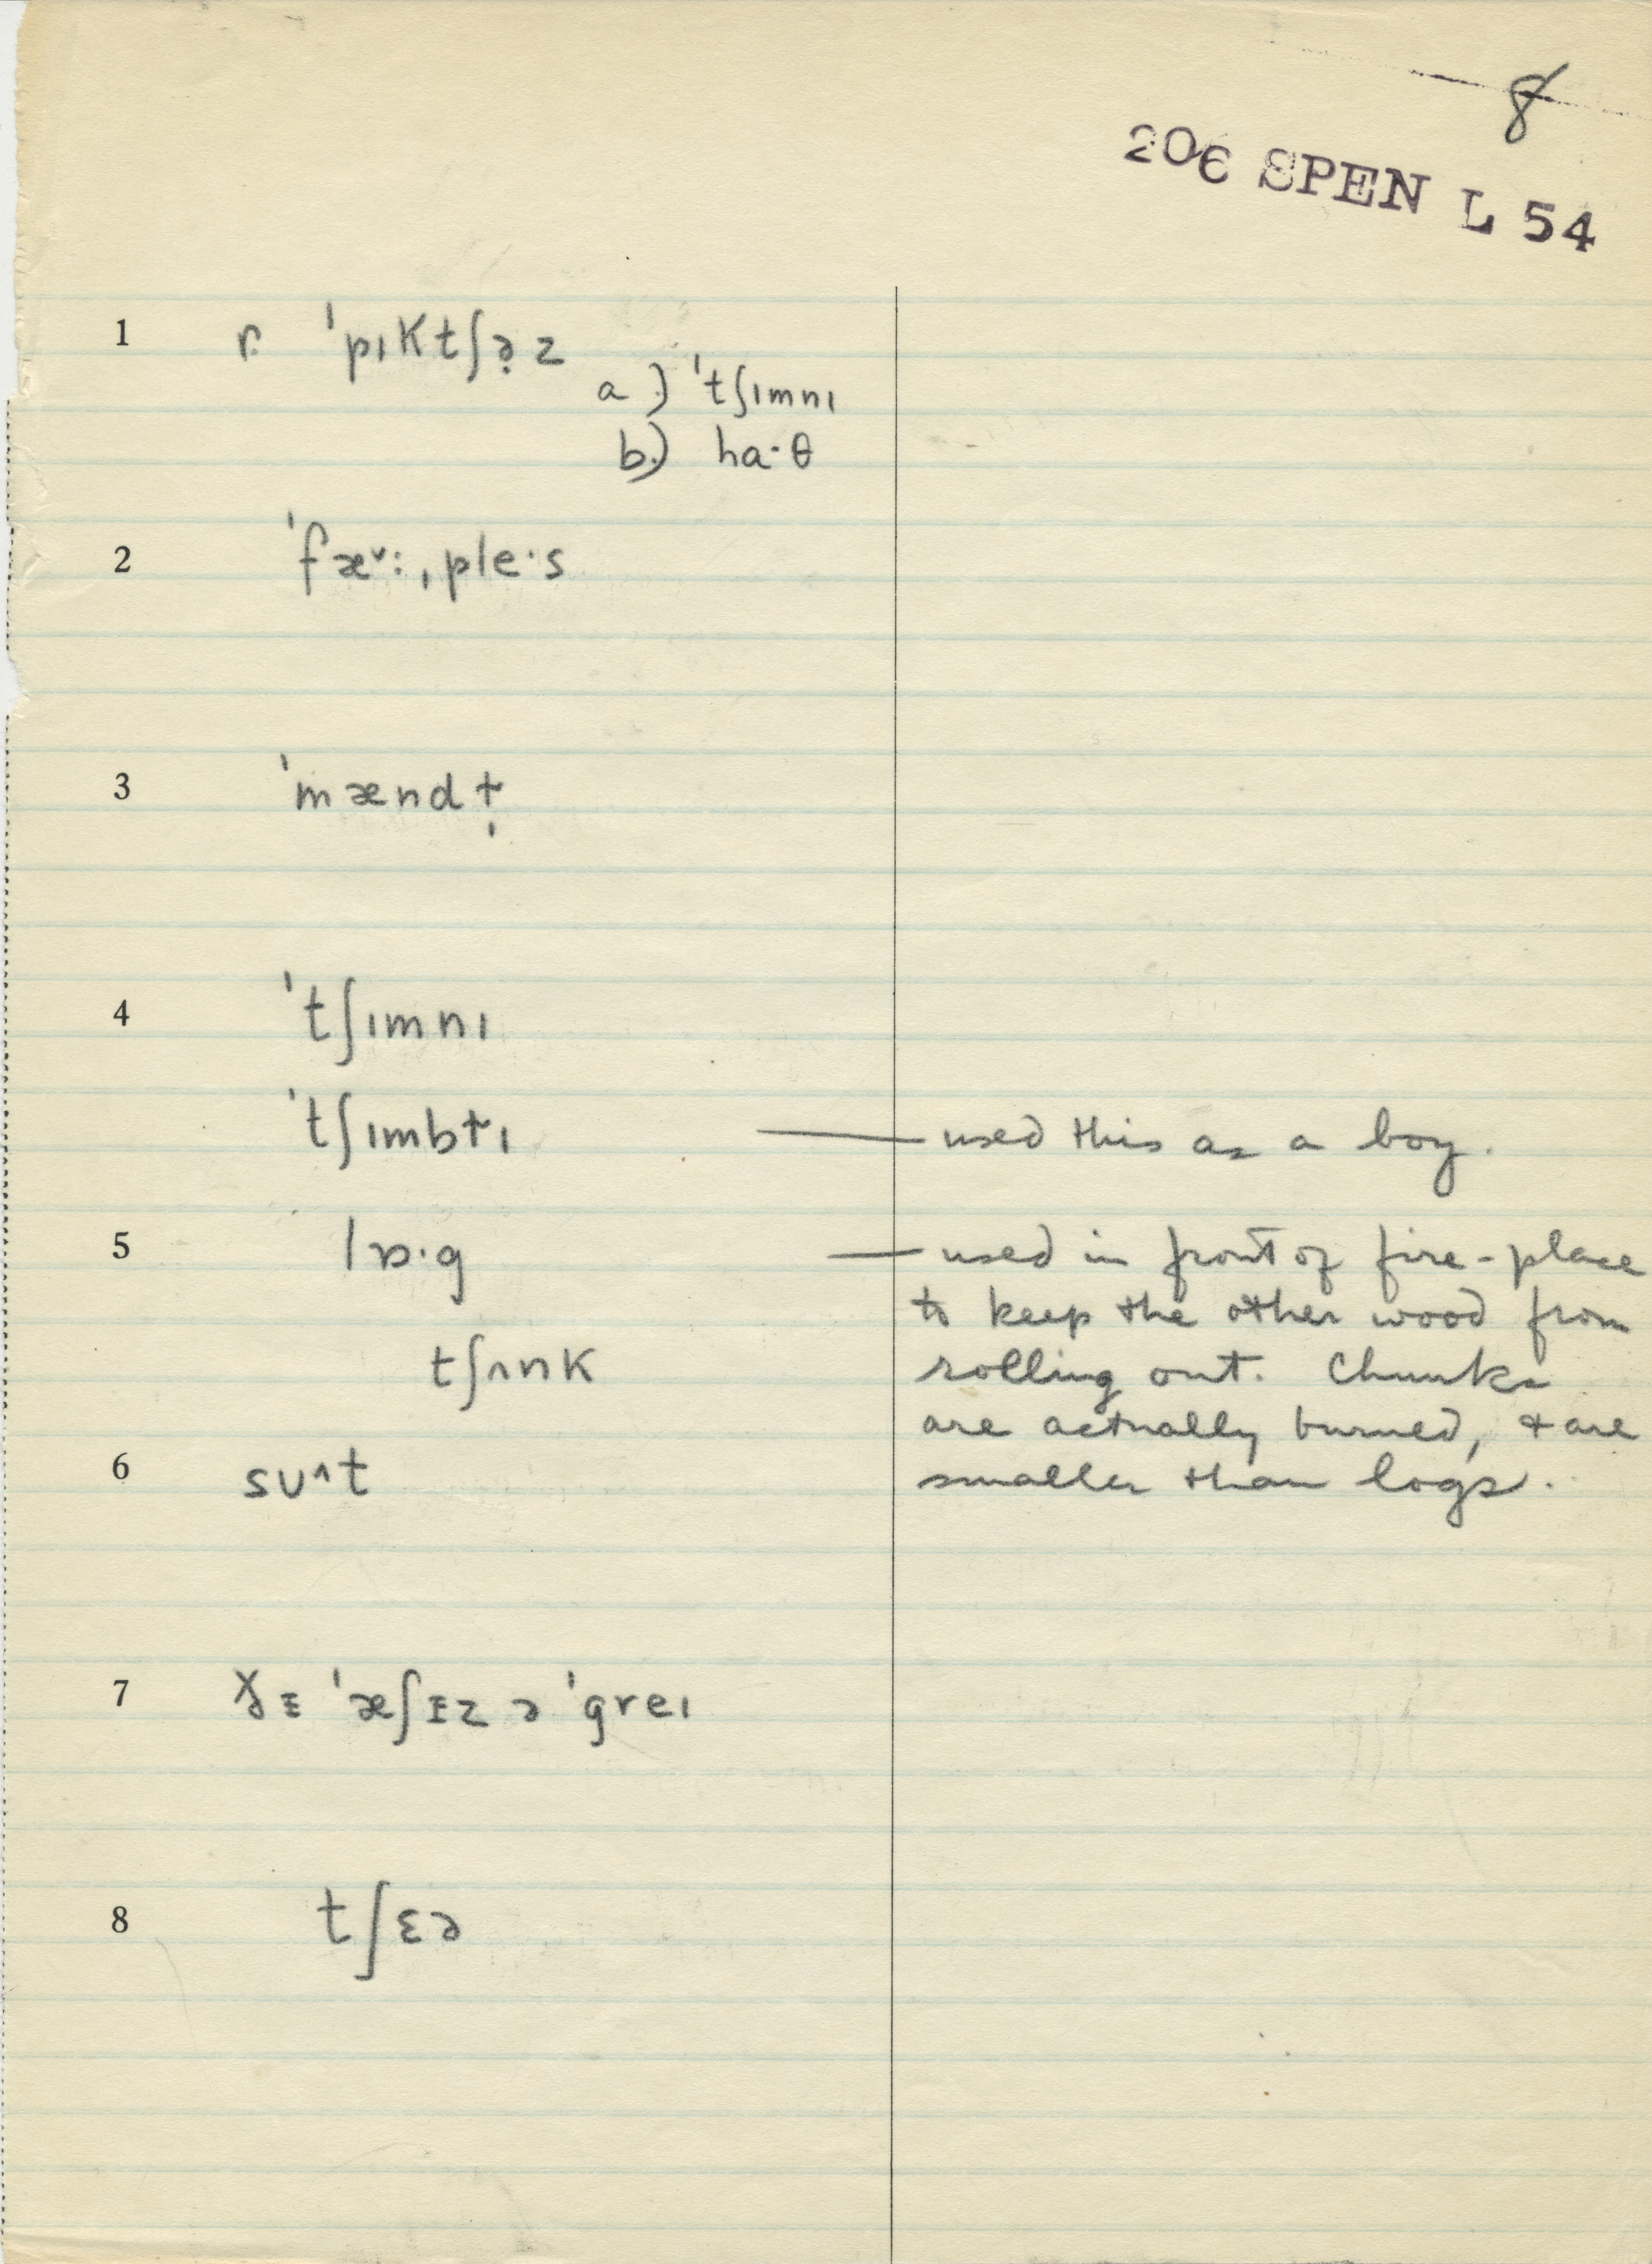 8
206 SPEN L 54
1 r. ˈpɪktʃə̣z
a.) ˈtʃɪmnɪ
b.) ha·θ
2 ˈfæ˅:ˌple·s
3 ˈmændɫ̩
4 ˈtʃɪmnɪ
ˈtʃɪmbɫɪ — used this as a boy.
5 lɒ·g — used in front of fire-place
to keep the other wood from
tʃʌnk rolling out. Chunks
are actually burned, + are
6 sʊ^t smaller than logs.
7 ɪz ˈæʃɪz ə ˈgreɪ
8 tʃɛə